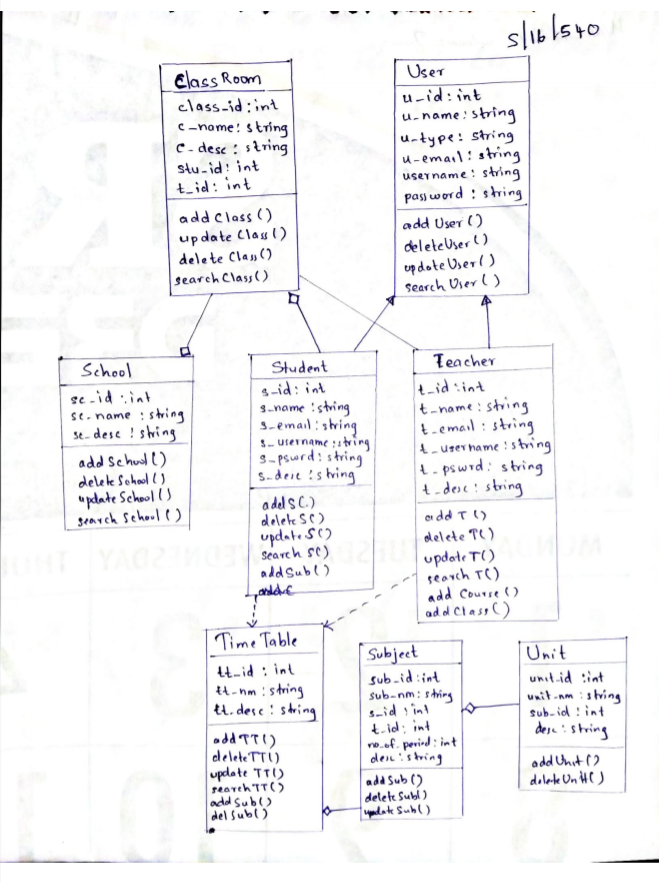 S/16/540
Class Room
class-id:int
c-name: string
c-desc: string
stu-id: int
t_id: int
add Class ()
update Class ()
delete Class()
searchClass()
User
u-id: int
u-name: string
u-type: string
u-email: string
username: string
password : string
add User ()
deleteUser ()
update User ()
search User ( )
School
sc-id :int
sc-name : string
sc-desc : string
add School ()
delete School ()
update School ()
search School ()
Student
s-id: int
s-name :string
s-email: string
s-username:string
s-pswrd: string
s-desc : string
addS()
delete S()
update S()
search S()
addSub()
Teacher
t-id:int
t-name: string
t-email: string
t-username: string
t-pswrd: string
t-desc : string
add T ()
delete T()
update T()
search T()
add Course ()
add Class ()
MUNDAY TUESDAY WEDNESDAY THUR
Time Table
tt-id : int
tt-nm : string
tt-desc : string
add TT()
delete TT()
update TT()
search TT()
addSub()
delSub()
Subject
sub-id:int
sub-nm: string
s-id : int
t-id: int
no.of.period: int
desc: string
addSub()
delete Sub()
update Sub()
Unit
unit-id :int
unit-nm : string
sub-id : int
desc : string
addUnit()
deleteUnit()